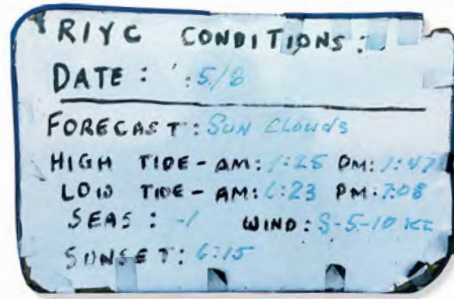 RIYC CONDITIONS:
DATE: 5/8
FORECAST: SUN CLOUDS
HIGH TIDE - AM: 1:25 PM: 1:47
LOW TIDE - AM: 6:23 PM: 7:08
SEAS: -1 WIND: S-5-10 KT
SUNSET: 6:15